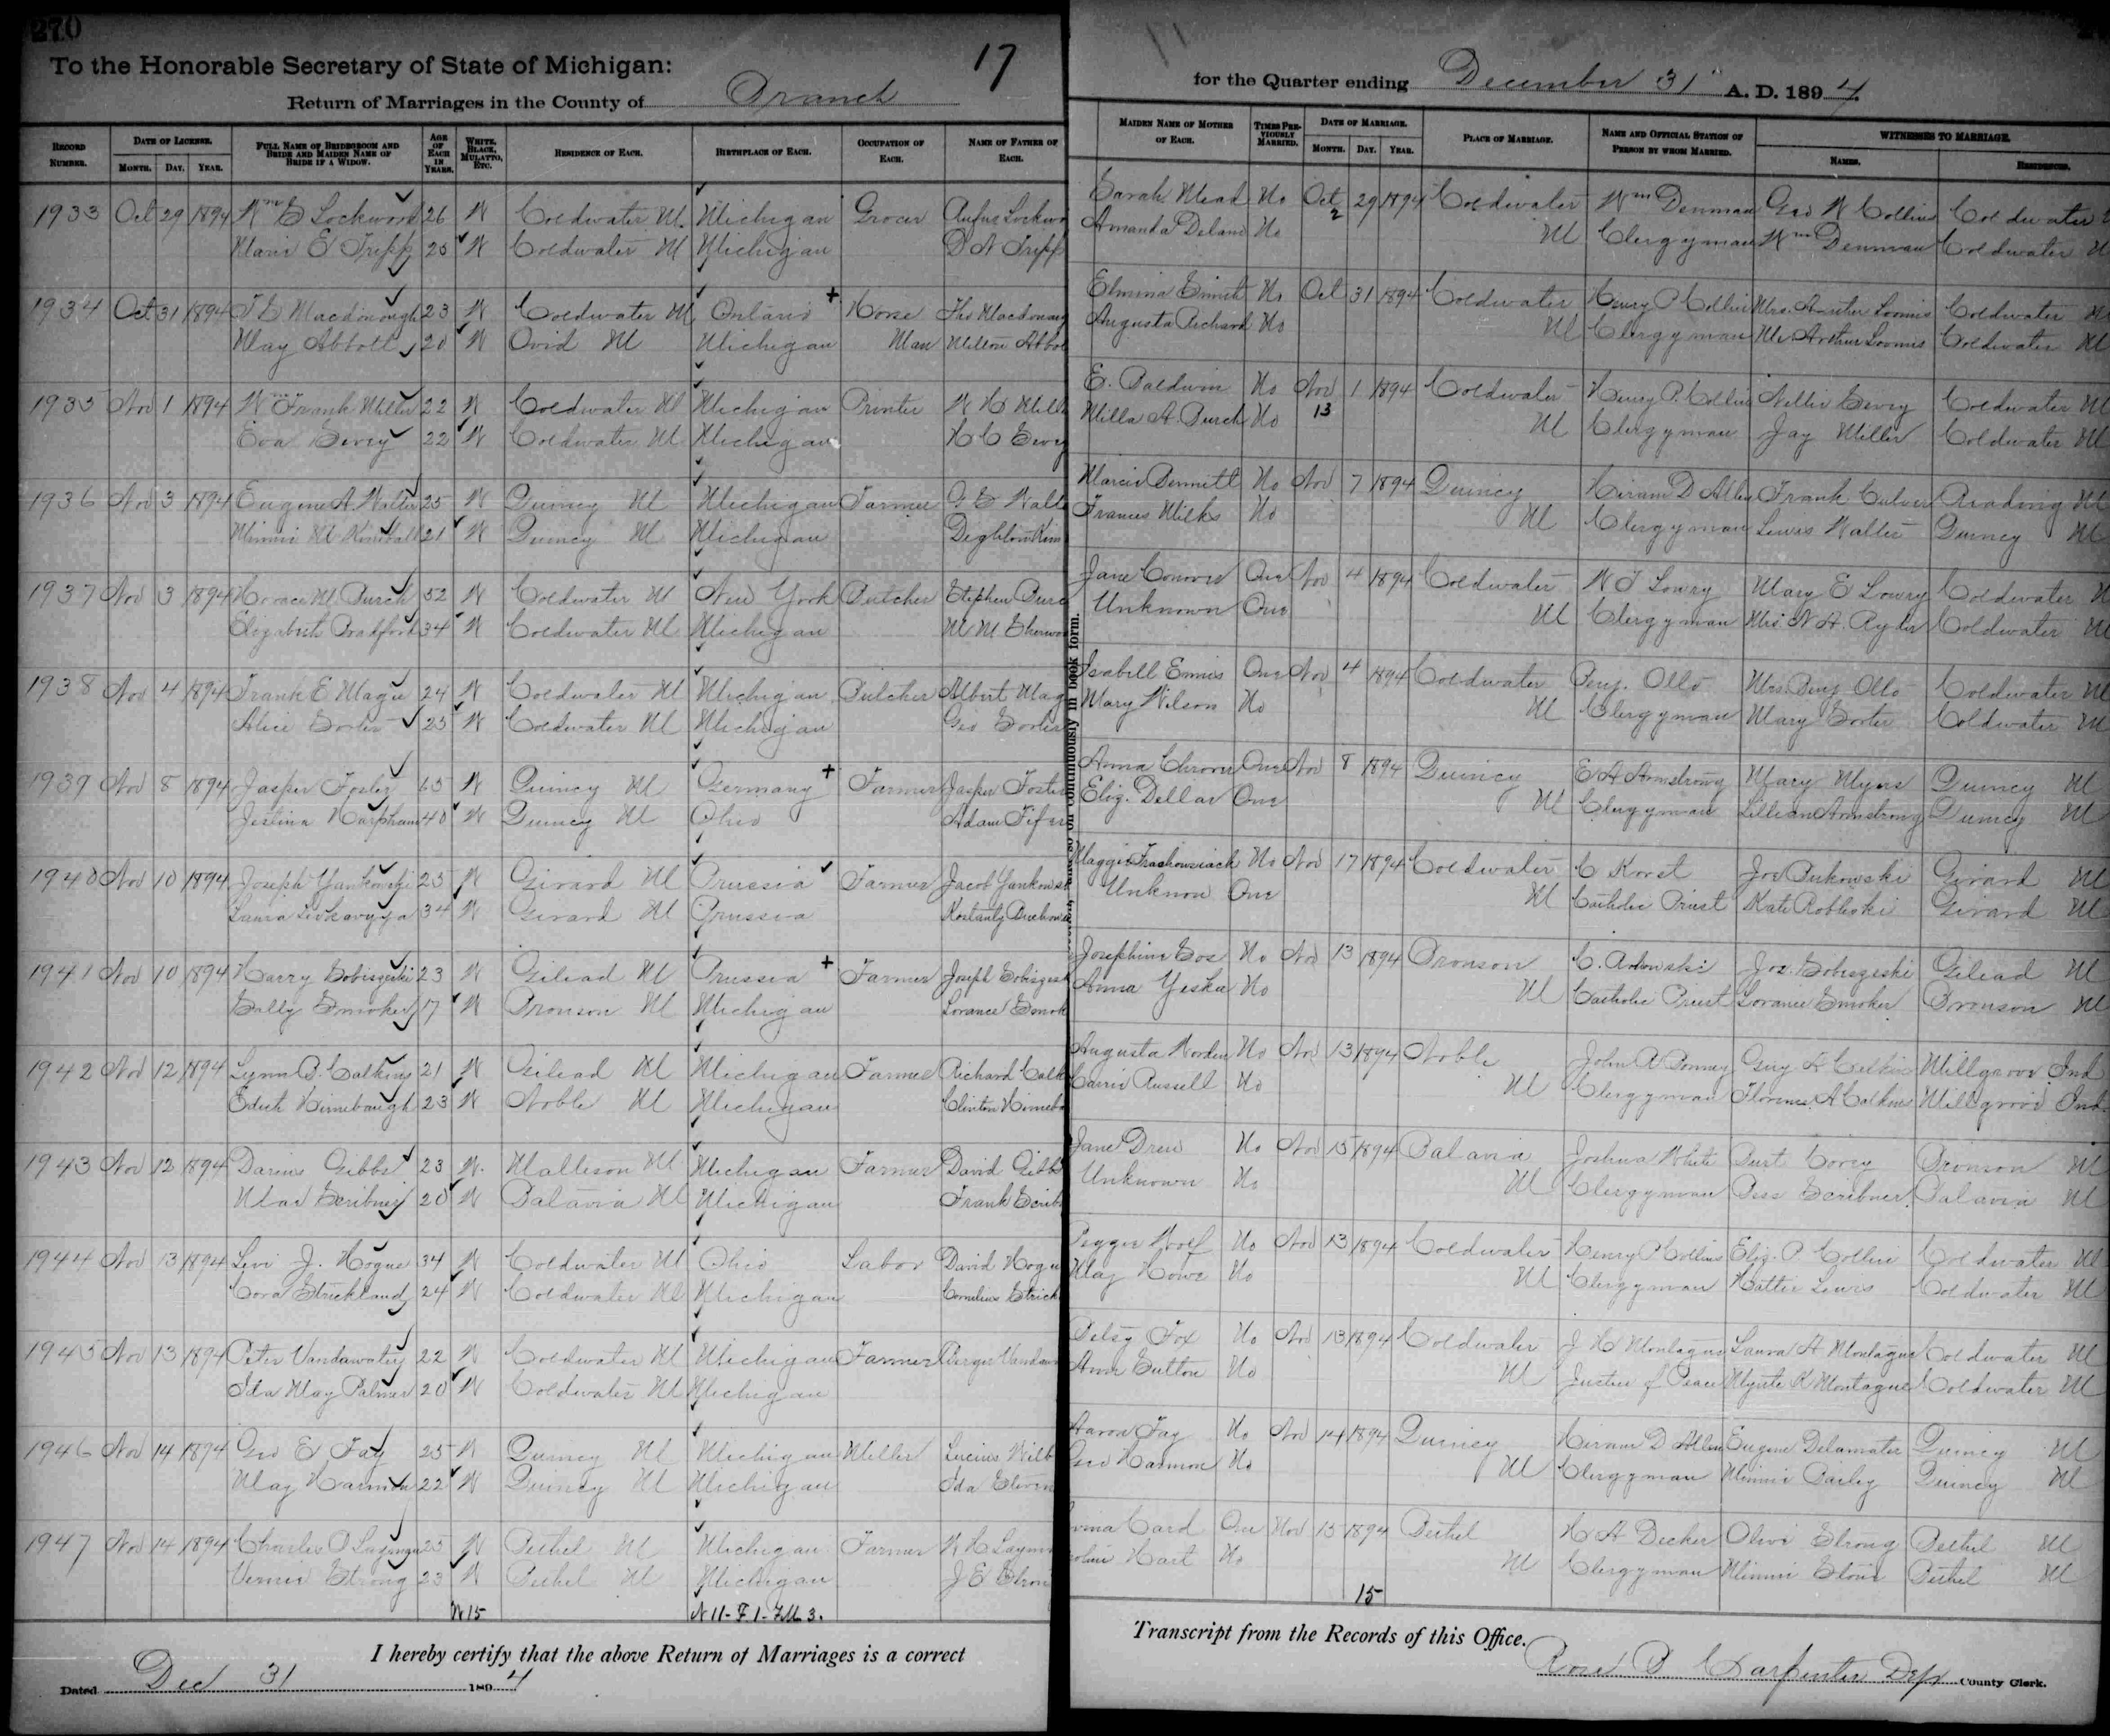 270
To the Honorable Secretary of State of Michigan:
17
Return of Marriages in the County of Branch
for the Quarter ending December 31 A. D. 1894
RECORD NUMBER.
DATE OF LICENSE.
MONTH. DAY. YEAR.
FULL NAME OF BRIDEGROOM AND BRIDE AND MAIDEN NAME OF BRIDE IF A WIDOW.
AGE OF EACH IN YEARS.
WHITE, BLACK, MULATTO, ETC.
RESIDENCE OF EACH.
BIRTHPLACE OF EACH.
OCCUPATION OF EACH.
NAME OF FATHER OF EACH.
MAIDEN NAME OF MOTHER OF EACH.
TIMES PREVIOUSLY MARRIED.
DATE OF MARRIAGE.
MONTH. DAY. YEAR.
PLACE OF MARRIAGE.
NAME AND OFFICIAL STATION OF PERSON BY WHOM MARRIED.
WITNESSES TO MARRIAGE.
NAMES. RESIDENCES.
1933 Oct 29 1894 Wm E Lockwood 26 W Coldwater M. Michigan Grocer Rufus Lockwo Sarah Mead No Oct 29 1894 Coldwater Wm Denman Geo W Collins Coldwater
E Tripp 25 W Coldwater M Michigan D A Tripp Amanda No 2 M Clergyman Wm Denman Coldwater M
1934 Oct 31 1894 Macdonough 23 W Coldwater M Ontario Horse Macdonoug Elmina No Oct 31 1894 Coldwater Henry P Collin Mrs. Arthur Loomis Coldwater M
May Abbott 20 W Ovid M Michigan Man Milton Abbo Augusta Richard No M Clergyman Mr. Arthur Loomis Coldwater M
1935 Nov 1 1894 Wm Frank Miller 22 W Coldwater M Michigan Printer W H Mill E. Baldwin No Nov 1 1894 Coldwater Henry P. Collin Nellie Coldwater M
Eva 22 W Coldwater M Michigan H C Milla A. Burch No 13 M Clergyman Jay Miller Coldwater M
1936 Nov 3 1894 Eugene A. Walter 25 W Quincy M Michigan Farmer G E Walt Bennett No Nov 7 1894 Quincy Hiram D Allen Frank Culver Reading M
Minnie M Kimball 21 W Quincy M Michigan Kim Frances Wilks No M Clergyman Lewis Walter Quincy M
1937 Nov 3 1894 Horace M Burch 52 W Coldwater M New York Butcher Stephen Burc Jane Conover One Nov 4 1894 Coldwater W T Lowry Mary E Lowry Coldwater M
Elizabeth Bradford 34 W Coldwater M. Michigan M M Sherwoo Unknown One M Clergyman Mrs N A. Coldwater M
1938 Nov 4 1894 Frank E Magee 24 W Coldwater M Michigan Butcher Albert Mag Isabell Ennis One Nov 4 1894 Coldwater Benj. Otto Mrs. Benj Otto Coldwater M
Alice Sorter 25 W Coldwater M Michigan Geo Sorter Mary Wilson No M Clergyman Mary Sorter Coldwater M
1939 Nov 8 1894 Jasper Foster 65 W Quincy M Germany Farmer Jasper Foster Anna One Nov 8 1894 Quincy E A Armstrong Mary Myers Quincy M
Harpham 40 W Quincy M Ohio Adam Eliz. Dellar One M Clergyman Lillian Armstrong Quincy M
1940 Nov 10 1894 Joseph Yankowski 25 W Girard M Prussia Farmer Jacob Yankowsk Maggie No Nov 17 1894 Coldwater C Korst Joe Girard M
Laura 34 W Girard M Prussia Unknown One M Catholic Priest Kate Girard M
1941 Nov 10 1894 Harry Sobiszeski 23 W Gilead M Prussia Farmer Joseph Sobiszes Josephine No Nov 13 1894 Bronson C. Jos. Sobiszeski Gilead M
Sally Smoker 17 W Bronson M Michigan Lorance Smok Anna No M Catholic Priest Lorance Smoker Bronson M
1942 Nov 12 1894 Lynn B. Calkins 21 W Gilead M Michigan Farmer Richard Calk Augusta Norden No Nov 13 1894 Noble John R Guy L Calkins Millgrove Ind
Edith Himebaugh 23 W Noble M Michigan Clinton Himeba Carrie Russell No M Clergyman Florence A Calkins Millgrove Ind
1943 Nov 12 1894 Darius Gibbs 23 W. Mattison M Michigan Farmer David Gibb Jane Drew No Nov 15 1894 Batavia Joshua White Burt Corey Bronson M
Scribner 20 W Batavia M Michigan Frank Scrib Unknown No M Clergyman Bess Scribner Batavia M
1944 Nov 13 1894 Levi J. Hogue 34 W Coldwater M Ohio Labor David Hogu No Nov 13 1894 Coldwater Henry P Collins Eliz. P Collin Coldwater M
Cora Strickland 24 W Coldwater M Michigan Cornelius Strick May Howe No M Clergyman Hattie Lewis Coldwater M
1945 Nov 13 1894 Peter Vandawater 22 W Coldwater M Michigan Farmer Betsy Fox No Nov 13 1894 Coldwater J H Montague Laura A Montague Coldwater M
Ida May Palmer 20 W Coldwater M Michigan Ann Sutton No M Justice of Peace K Montague Coldwater M
1946 Nov 14 1894 Geo E Fay 25 W Quincy M Michigan Miller Lucius Wilb Aaron Fay No Nov 14 1894 Quincy Hiram D Allen Eugene Delamater Quincy M
May Harmon 22 W Quincy M Michigan Ida Geo Harmon No M Clergyman Minnie Bailey Quincy M
1947 Nov 14 1894 Charles O Layman 25 W Bethel M Michigan Farmer Laym Card One Nov 15 1894 Bethel H A Decker Olive Strong Bethel M
Strong 23 W Bethel M Michigan J E Stron Hart No M Clergyman Minnie Bethel M
W 15 N 11- F 1- F.M. 3. 15
I hereby certify that the above Return of Marriages is a correct
Transcript from the Records of this Office.
Dated Dec 31 1894
Rose B Carpenter Dep County Clerk.